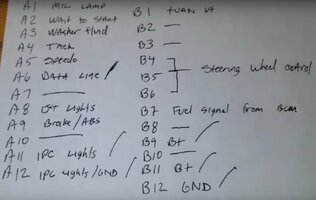 A1 MIL LAMP
A2 Wait to Start
A3 Washer fluid
A4 Tach
A5 Speedo
A6 DATA LINE /
A7 —
A8 Lights
A9 Brake/ABS
A10 —
A11 IPC Lights /
A12 IPC Lights/GND /
B1 turn
B2 —
B3 —
B4
B5 Steering wheel control
B6
B7 Fuel signal from BCM
B8 —
B9 B+ /
B10 —
B11 B+ /
B12 GND /